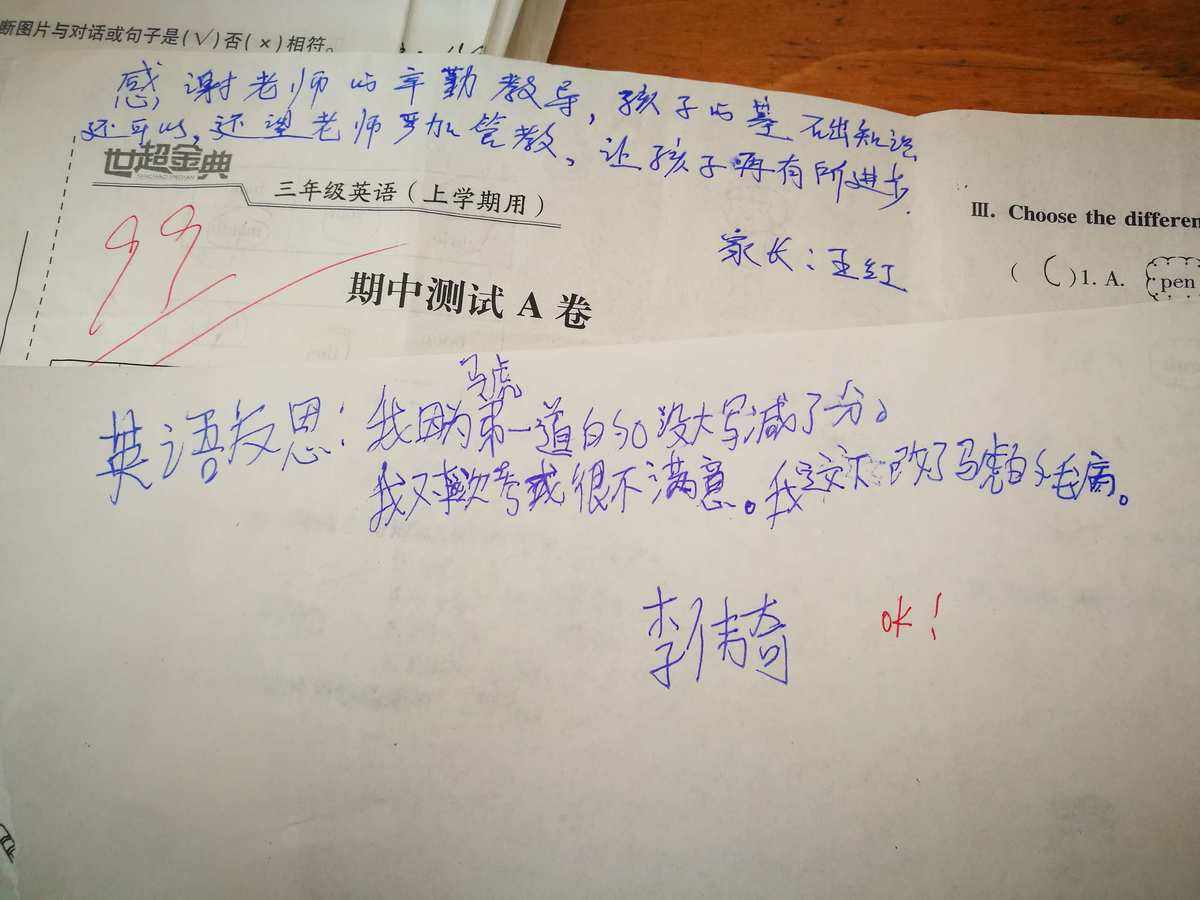 断图片与对话或句子是(√)否(×)相符。
感谢老师的辛勤教导，孩子的基础知识
还可以，还望老师严加管教。让孩子再有所进步.
世超金典
SHICHAO JINDIAN
三年级英语（上学期用）
家长：王红
99
期中测试 A 卷
III. Choose the differen
( C )1. A. pen
马虎
英语反思：我因为第一道的so没大写减了分。
我对这次考试很不满意。我这次 改了马虎的毛病。
李伟奇
OK！